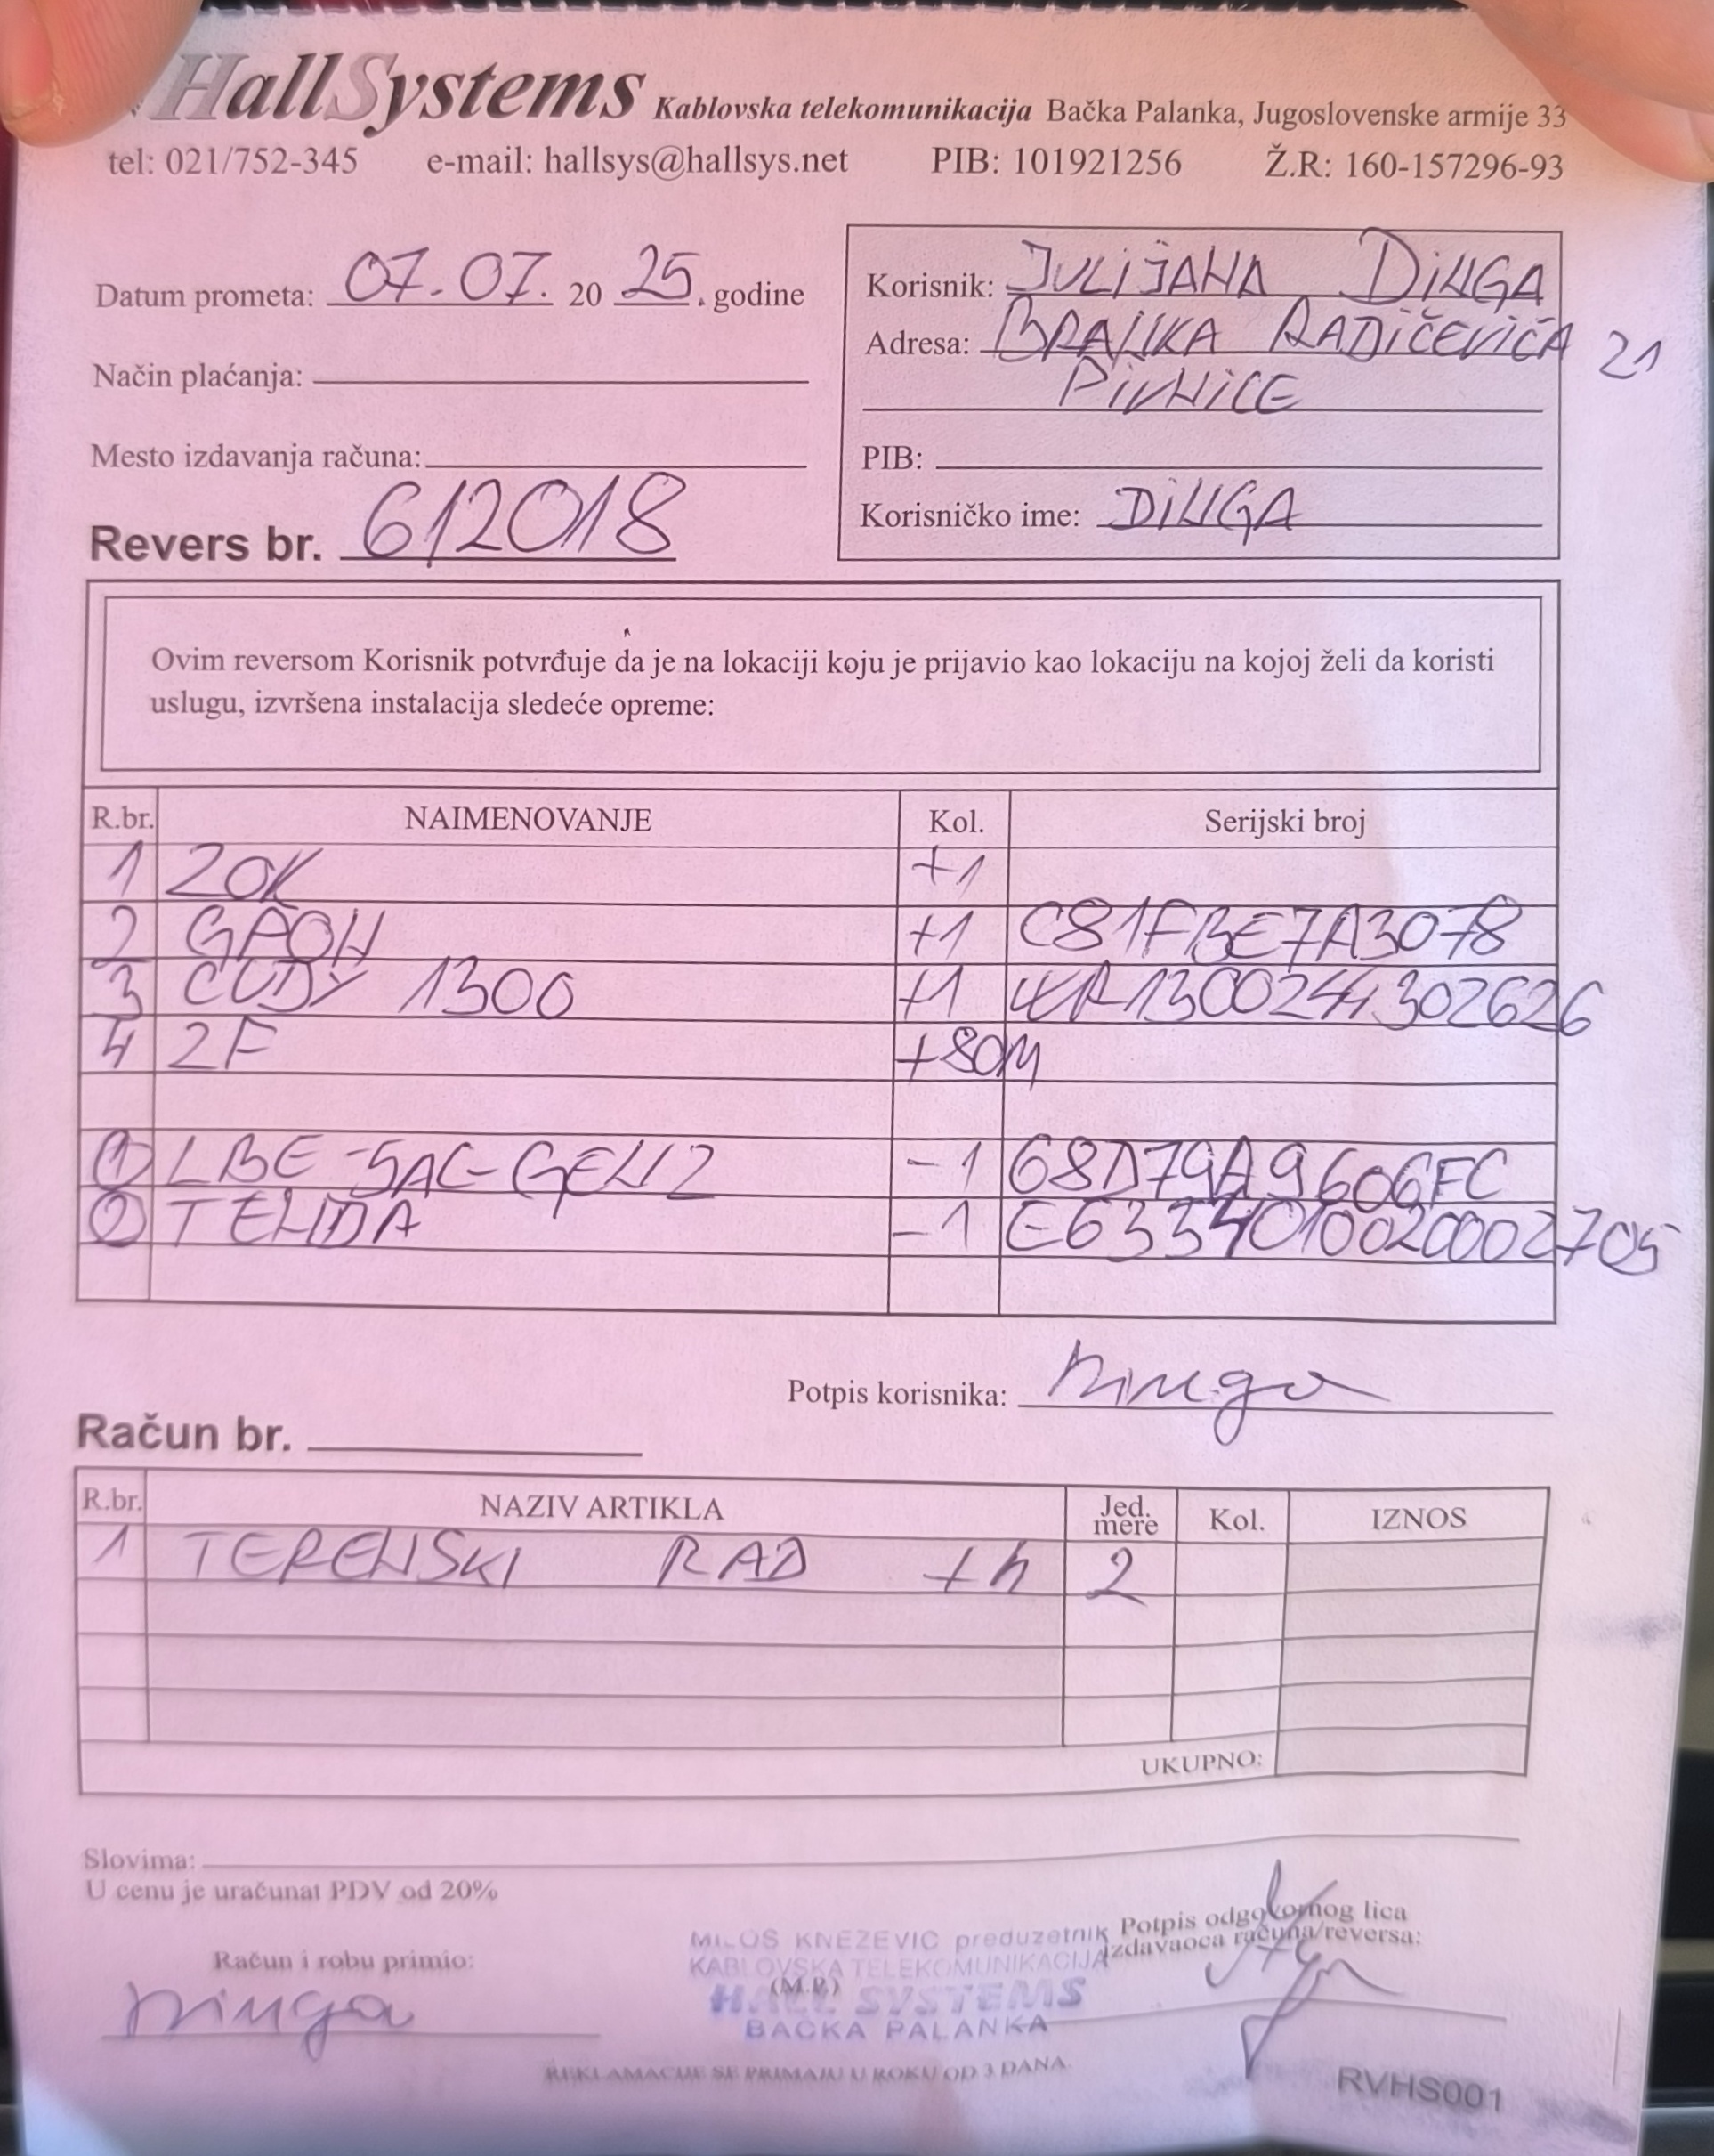 HallSystems Kablovska telekomunikacija Bačka Palanka, Jugoslovenske armije 33
tel: 021/752-345 e-mail: hallsys@hallsys.net PIB: 101921256 Ž.R: 160-157296-93
Datum prometa: 07.07. 20 25. godine
Način plaćanja:
Mesto izdavanja računa:
Revers br. 612018
Korisnik: JULIJANA DINGA
Adresa: BRANKA RADIČEVIĆA 21
PIVNICE
PIB:
Korisničko ime: DINGA
Ovim reversom Korisnik potvrđuje da je na lokaciji koju je prijavio kao lokaciju na kojoj želi da koristi
uslugu, izvršena instalacija sledeće opreme:
R.br. NAIMENOVANJE Kol. Serijski broj
1 ZOK +1
2 GPON +1 C81FBE7A3078
3 CUDY 1300 +1 WR1300244302626
4 2F +80M
1 LBE-5AC-GEN2 -1 68D79A9606FC
2 TENDA -1 E6334010020002705
Potpis korisnika: Dinga
Račun br.
R.br. NAZIV ARTIKLA Jed. mere Kol. IZNOS
1 TERENSKI RAD +h 2
UKUPNO:
Slovima:
U cenu je uračunat PDV od 20%
Račun i robu primio:
Dinga
MILOŠ KNEZEVIC preduzetnik
KABLOVSKA TELEKOMUNIKACIJA
(M.P.)
HALL SYSTEMS
BAČKA PALANKA
Potpis odgovornog lica
izdavaoca računa/reversa:
REKLAMACIJE SE PRIMAJU U ROKU OD 3 DANA.
RVHS001